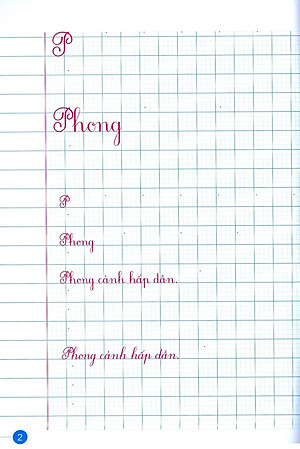 P
Phong
P
Phong
Phong cảnh hấp dẫn.
Phong cảnh hấp dẫn.
2